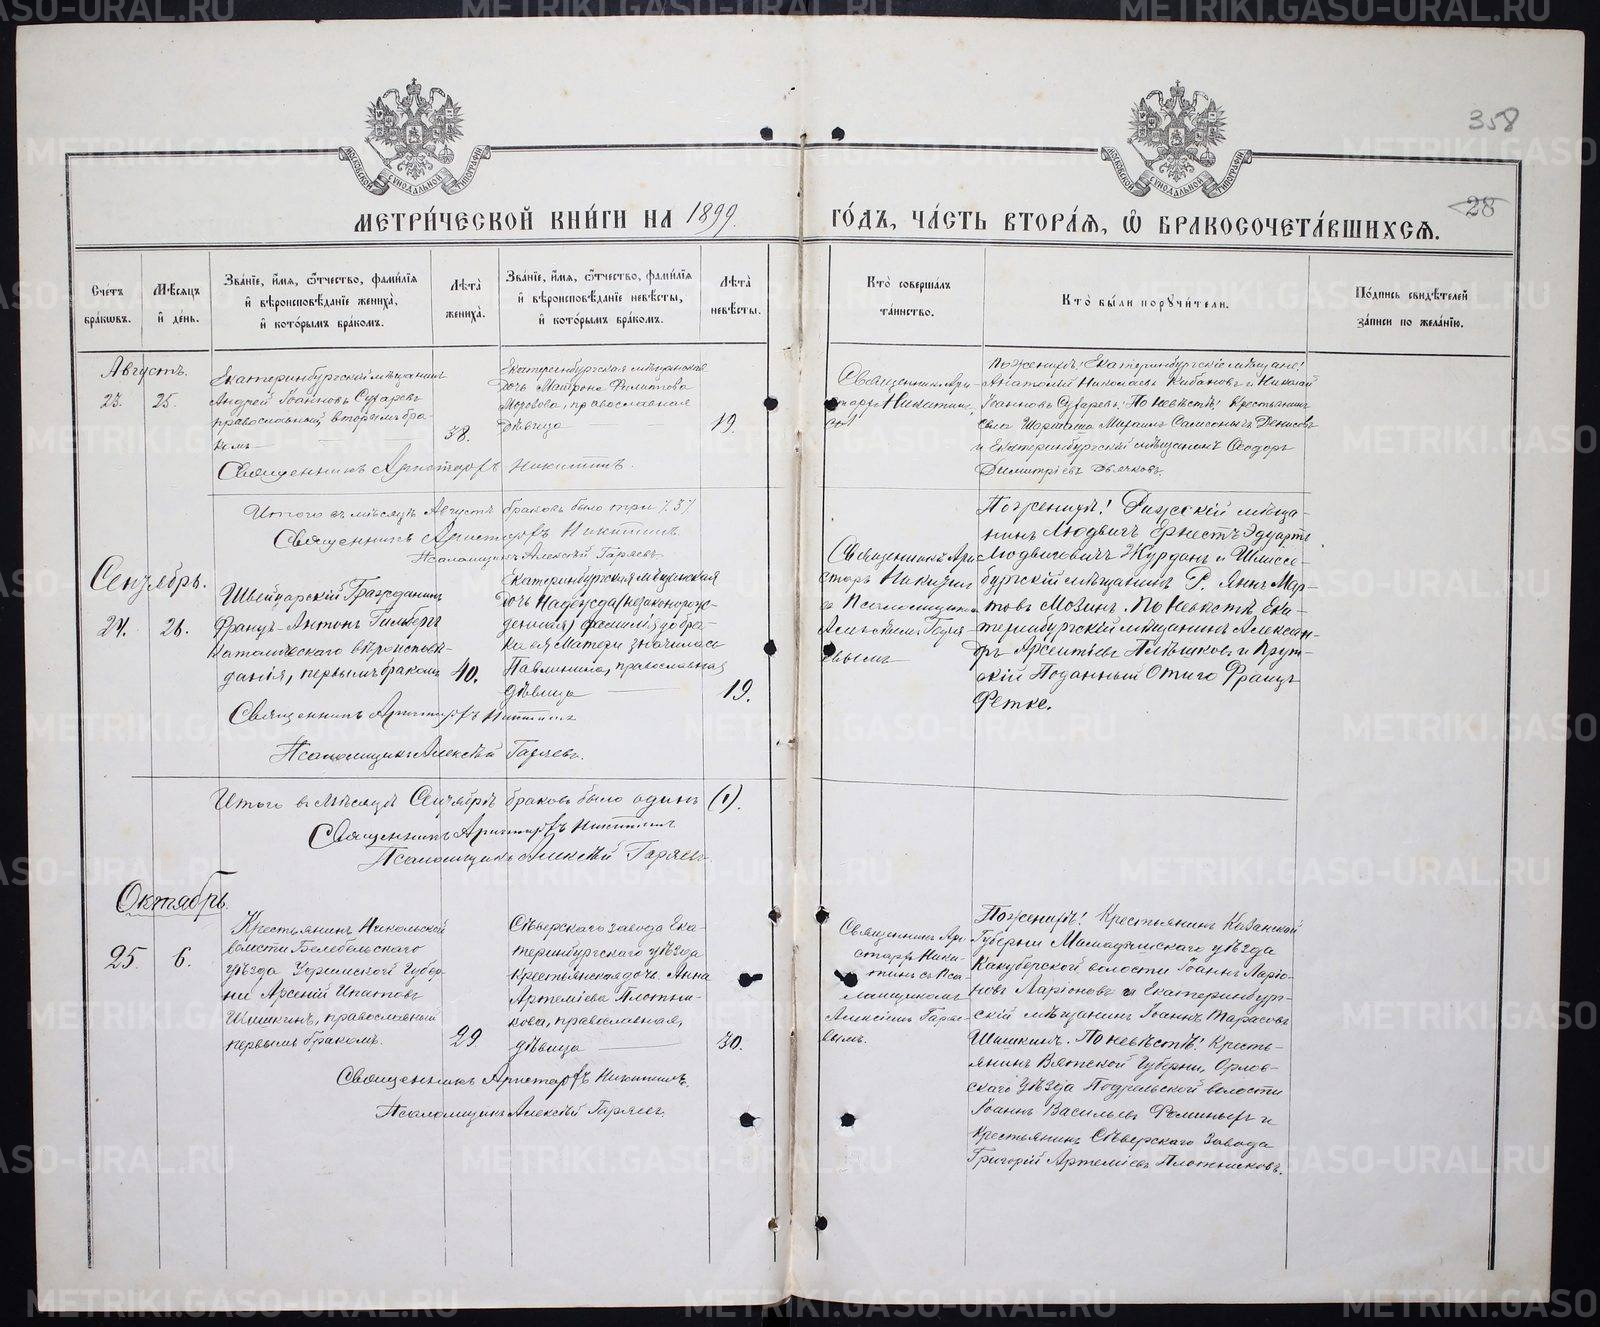 358
28
МЕТРИ́ЧЕСКОЙ КНИ́ГИ НА 1899
ГО́ДЪ, ЧА́СТЬ ВТОРА́Я, Ѡ БРАКОСОЧЕТА́ВШИХСѦ.
Сче́тъ бра́кѡвъ.
Мѣ́сяцъ и҆ де́нь.
Зва́нїе, и҆́мѧ, ѻ҆́тчество, фами́лїѧ
и҆ вѣроисповѣ́данїе жениха̀,
и҆ кото́рымъ бра́комъ.
Лѣ́та жениха̀.
Зва́нїе, и҆́мѧ, ѻ҆́тчество, фами́лїѧ
и҆ вѣроисповѣ́данїе невѣ́сты,
и҆ кото́рымъ бра́комъ.
Лѣ́та невѣ́сты.
Кто̀ соверша́лъ
та́инство.
Кто̀ бы́ли порꙋчи́тели.
По́дпись свидѣ́телей
за́писи по жела́нїю.
Августъ.
23.
25.
Екатеринбургскій мѣщанинъ
Андрей Іоанновъ Сухаревъ
православный, вторымъ бра-
комъ
38.
Екатеринбургская мѣщанская
дочь Матрона Филиппова
православная
дѣвица
19.
Священникъ Ари-
стархъ Никитинъ
Поженихѣ: Екатеринбургскіе мѣщане:
Анатолій Николаевъ Кабановъ и Николай
Іоанновъ Сухаревъ. По невѣстѣ: Крестьянинъ
села Шарташа Михаилъ Самсоновъ Денисовъ
и Екатеринбургскій мѣщанинъ Ѳеодоръ
Димитріевъ
Священникъ Аристархъ Никитинъ.
Итого въ мѣсяцѣ Августѣ браковъ было три /3/
Священникъ Аристархъ Никитинъ.
Псаломщикъ Алексѣй Гаряевъ
Сентябрь.
24.
26.
Швейцарскій Гражданинъ
Францъ-Антонъ Гимбергъ
католическаго вѣроисповѣ-
данія, первымъ бракомъ
40.
Екатеринбургская мѣщанская
дочь Надежда (незаконорож-
денная) фамилія до бра-
ка ея матери значилась
Павлинина, православная,
дѣвица
19.
Священникъ Ари-
стархъ Никитинъ
съ Псаломщикомъ
Алексѣемъ Гаря-
евымъ
Поженихѣ: Рижскій мѣща-
нинъ Людвигъ Ернестъ Эдуардъ
Людвиговичъ Журданъ и Шлиссе-
бургскій мѣщанинъ Р. Янъ Мар-
товъ Мозинъ. По невѣстѣ Ека-
теринбургскій мѣщанинъ Алексан-
дръ Арсентіевъ Плѣшковъ и Прус-
скій Подданный Отто Францъ
Фетке.
Священникъ Аристархъ Никитинъ
Псаломщикъ Алексѣй Гаряевъ.
Итого въ мѣсяцѣ Сентябрѣ браковъ было одинъ (1).
Священникъ Аристархъ Никитинъ
Псаломщикъ Алексѣй Гаряевъ
Октябрь.
25.
6.
Крестьянинъ Никольской
волости Белебеевскаго
уѣзда Уфимской Губер-
ніи Арсеній Ипатовъ
Шишкинъ, православный
первымъ бракомъ.
29.
Сѣверскаго завода Ека-
теринбургскаго уѣзда
Крестьянская дочь Анна
Артеміева Плотни-
кова, православная,
дѣвица
30.
Священникъ Ари-
стархъ Ники-
тинъ съ Пса-
ломщикомъ
Алексѣемъ Гаряе-
вымъ.
Поженихѣ: Крестьянинъ Казанской
Губерніи Мамадышскаго уѣзда
волости Іоаннъ Ларіо-
новъ Ларіоновъ и Екатеринбург-
скій мѣщанинъ Іоаннъ Тарасовъ
Шишкинъ. По невѣстѣ: Кресть-
янинъ Вятской Губерніи, Орлов-
скаго уѣзда Подрельской волости
Іоаннъ Васильевъ Фоминыхъ и
Крестьянинъ Сѣверскаго завода
Григорій Артеміевъ Плотниковъ.
Священникъ Аристархъ Никитинъ.
Псаломщикъ Алексѣй Гаряевъ.
METRIKI.GASO-URAL.RU